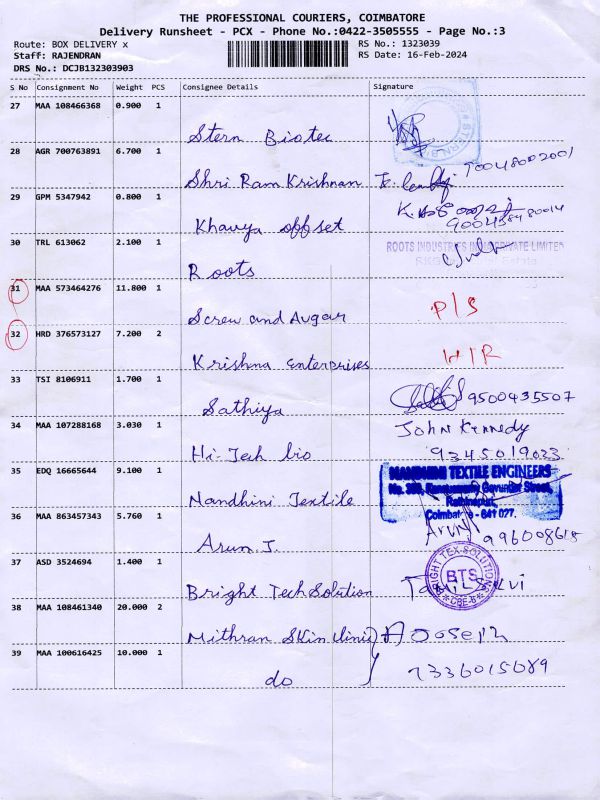 THE PROFESSIONAL COURIERS, COIMBATORE
Delivery Runsheet - PCX - Phone No.:0422-3505555 - Page No.:3
Route: BOX DELIVERY x
RS No.: 1323039
Staff: RAJENDRAN
RS Date: 16-Feb-2024
DRS No.: DCJB132303903
S No Consignment No Weight PCS Consignee Details Signature
27 MAA 108466368 0.900 1
Stern Biotec
28 AGR 700763891 6.700 1
Shri Ram Krishnan
29 GPM 5347942 0.800 1
Khavya offset
30 TRL 613062 2.100 1
ROOTS INDUSTRIES PRIVATE LIMITED
Roots
31 MAA 573464276 11.800 1
Screw and Augar P/S
32 HRD 376573127 7.200 2
Krishna Enterprises H/R
33 TSI 8106911 1.700 1
Sathiya 9500435507
34 MAA 107288168 3.030 1 John Kennedy
Hi-Tech bio 9345019023
35 EDQ 16665644 9.100 1
NANDHINI TEXTILE ENGINEERS
Nandhini Textile
Coimbatore - 641 027.
36 MAA 863457343 5.760 1
Arun. J. ARUN 996008618
37 ASD 3524694 1.400 1
BRIGHT TEX SOLUTION
BTS
CBE-6
Bright Tech Solution
38 MAA 108461340 20.000 2
Mithran Skin clinic Joseph
39 MAA 100616425 10.000 1
do 7336015089